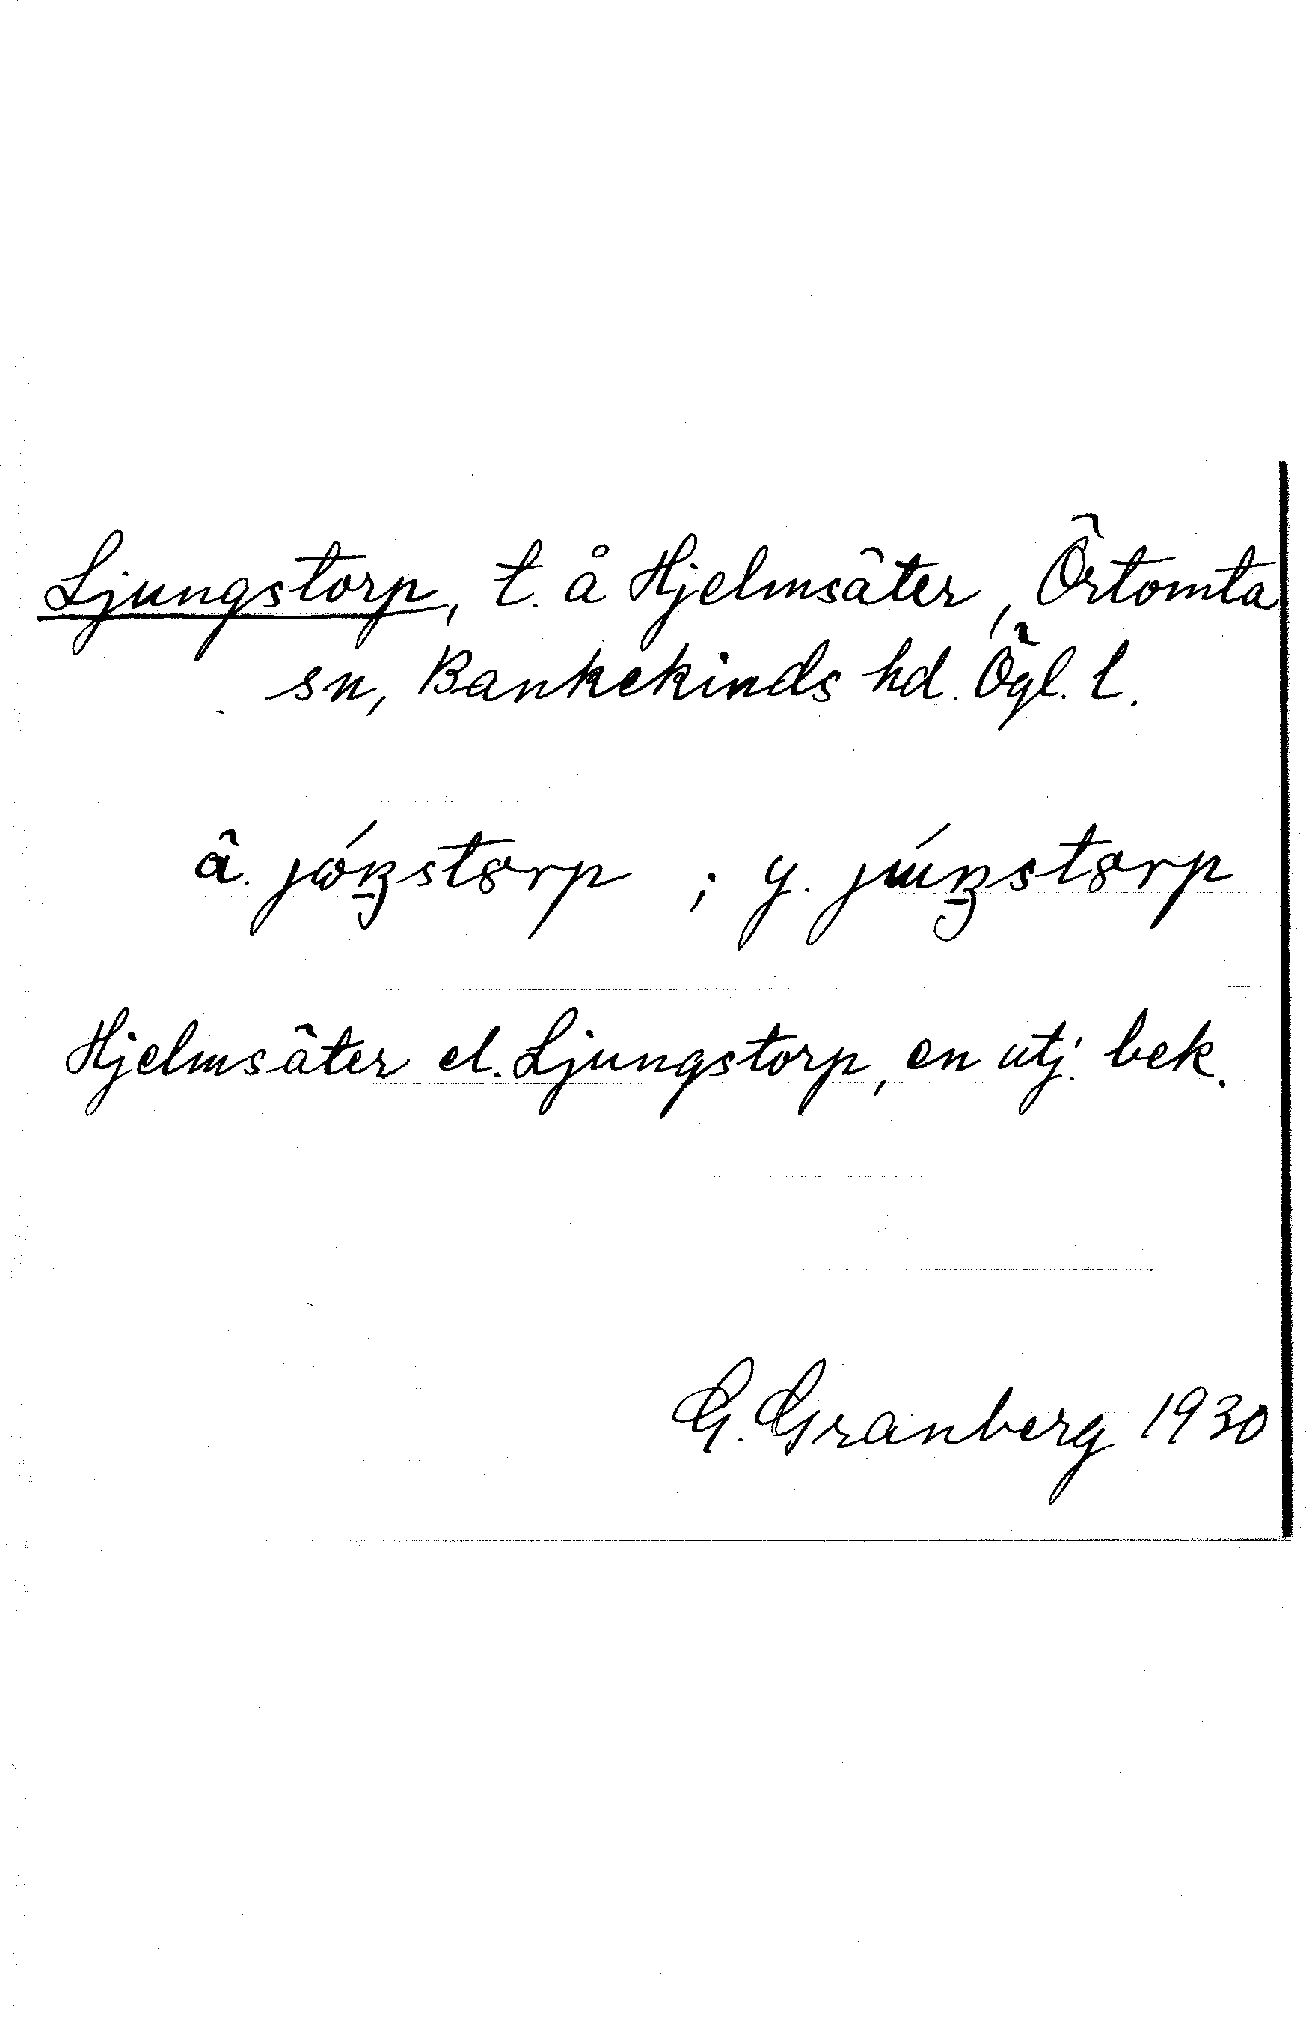 Ljungstorp, t. å Hjelmsäter, Örtomta
sn, Bankekinds hd. Ögl. l.
ä. ; y.
Hjelmsäter el. Ljungstorp, en utj. bek.
G. Granberg 1930